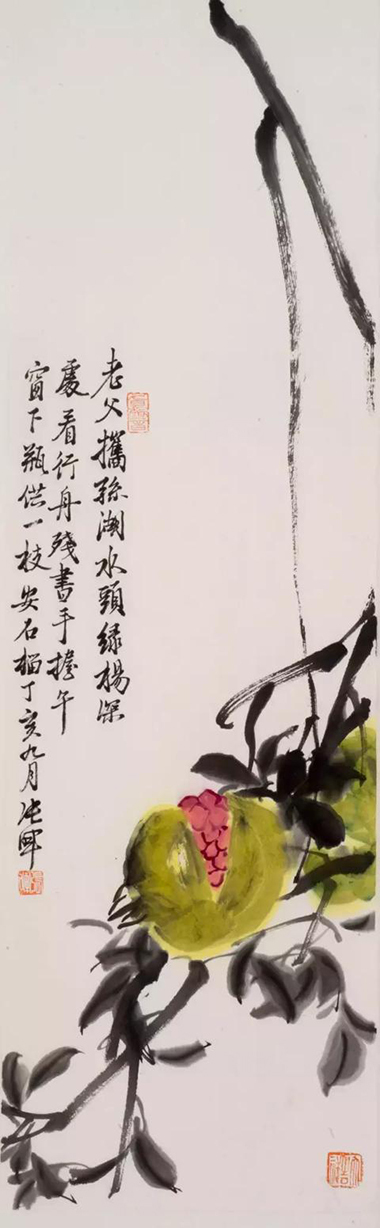 老父攜孫湖水頭綠楊深
處看行舟殘書手午
窗下瓶供一枝安石榴丁亥九月